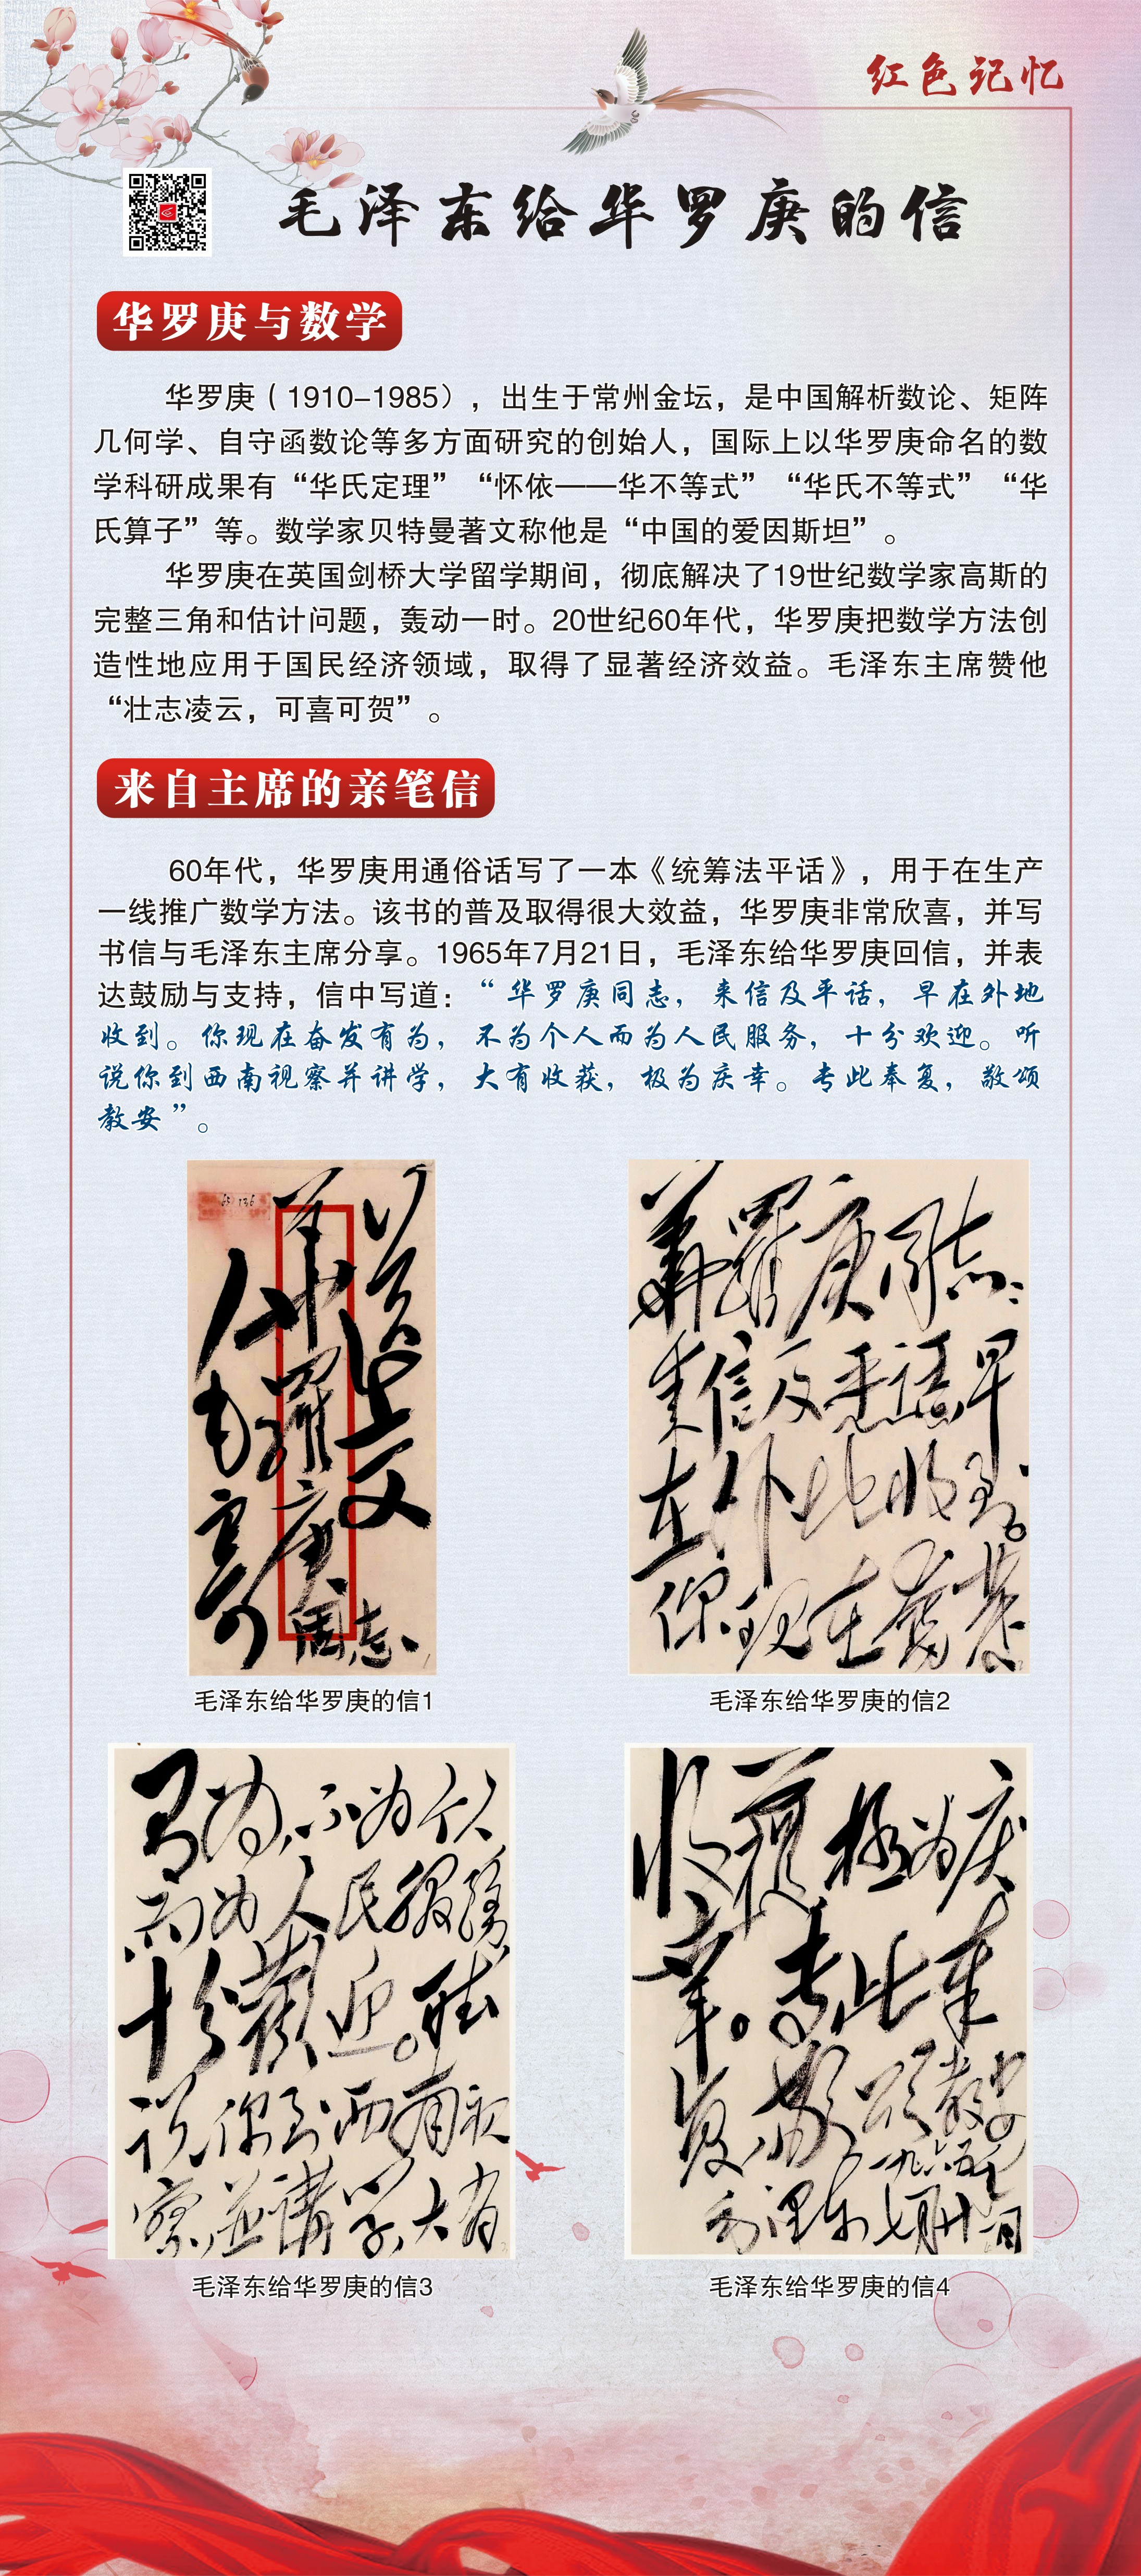 红色记忆
毛泽东给华罗庚的信
华罗庚与数学
华罗庚（1910-1985），出生于常州金坛，是中国解析数论、矩阵
几何学、自守函数论等多方面研究的创始人，国际上以华罗庚命名的数
学科研成果有“华氏定理”“怀依——华不等式”“华氏不等式”“华
氏算子”等。数学家贝特曼著文称他是“中国的爱因斯坦”。
华罗庚在英国剑桥大学留学期间，彻底解决了19世纪数学家高斯的
完整三角和估计问题，轰动一时。20世纪60年代，华罗庚把数学方法创
造性地应用于国民经济领域，取得了显著经济效益。毛泽东主席赞他
“壮志凌云，可喜可贺”。
来自主席的亲笔信
60年代，华罗庚用通俗话写了一本《统筹法平话》，用于在生产
一线推广数学方法。该书的普及取得很大效益，华罗庚非常欣喜，并写
书信与毛泽东主席分享。1965年7月21日，毛泽东给华罗庚回信，并表
达鼓励与支持，信中写道：“华罗庚同志，来信及平话，早在外地
收到。你现在奋发有为，不为个人而为人民服务，十分欢迎。听
说你到西南视察并讲学，大有收获，极为庆幸。专此奉复，敬颂
教安”。
華羅庚同志
毛泽东给华罗庚的信1
華羅庚同志：
来信及平话，早
在外地收到。
你现在奮發
毛泽东给华罗庚的信2
有为，不为个人
而为人民服務，
十分歡迎。听
说你到西南视
察並講学，大有
毛泽东给华罗庚的信3
收穫，极为庆
幸。专此奉
复，敬颂教安
毛泽东
一九六五年
七月廿一日
毛泽东给华罗庚的信4